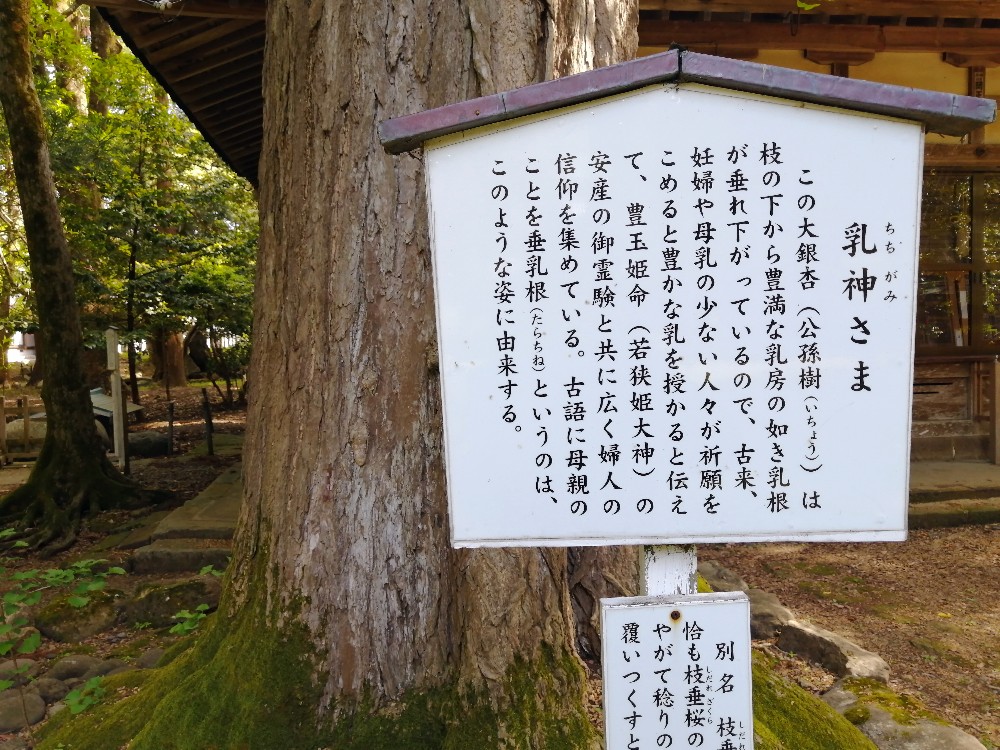 乳神さま
ちちがみ
この大銀杏（公孫樹（いちょう））は
枝の下から豊満な乳房の如き乳根
が垂れ下がっているので、古来、
妊婦や母乳の少ない人々が祈願を
こめると豊かな乳を授かると伝え
て、豊玉姫命（若狭姫大神）の
安産の御霊験と共に広く婦人の
信仰を集めている。古語に母親の
ことを垂乳根（たらちね）というのは、
このような姿に由来する。
別名 枝垂
しだれ
恰も枝垂桜の
しだれざくら
やがて稔りの
覆いつくすと